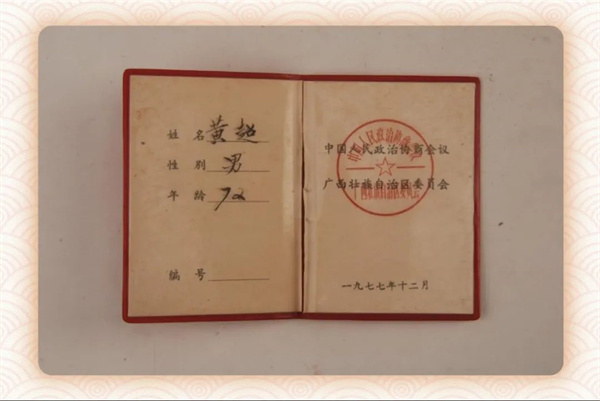 姓名 黄超
性别 男
年龄 72
编号
中国人民政治协商会议
广西壮族自治区委员会
一九七七年十二月